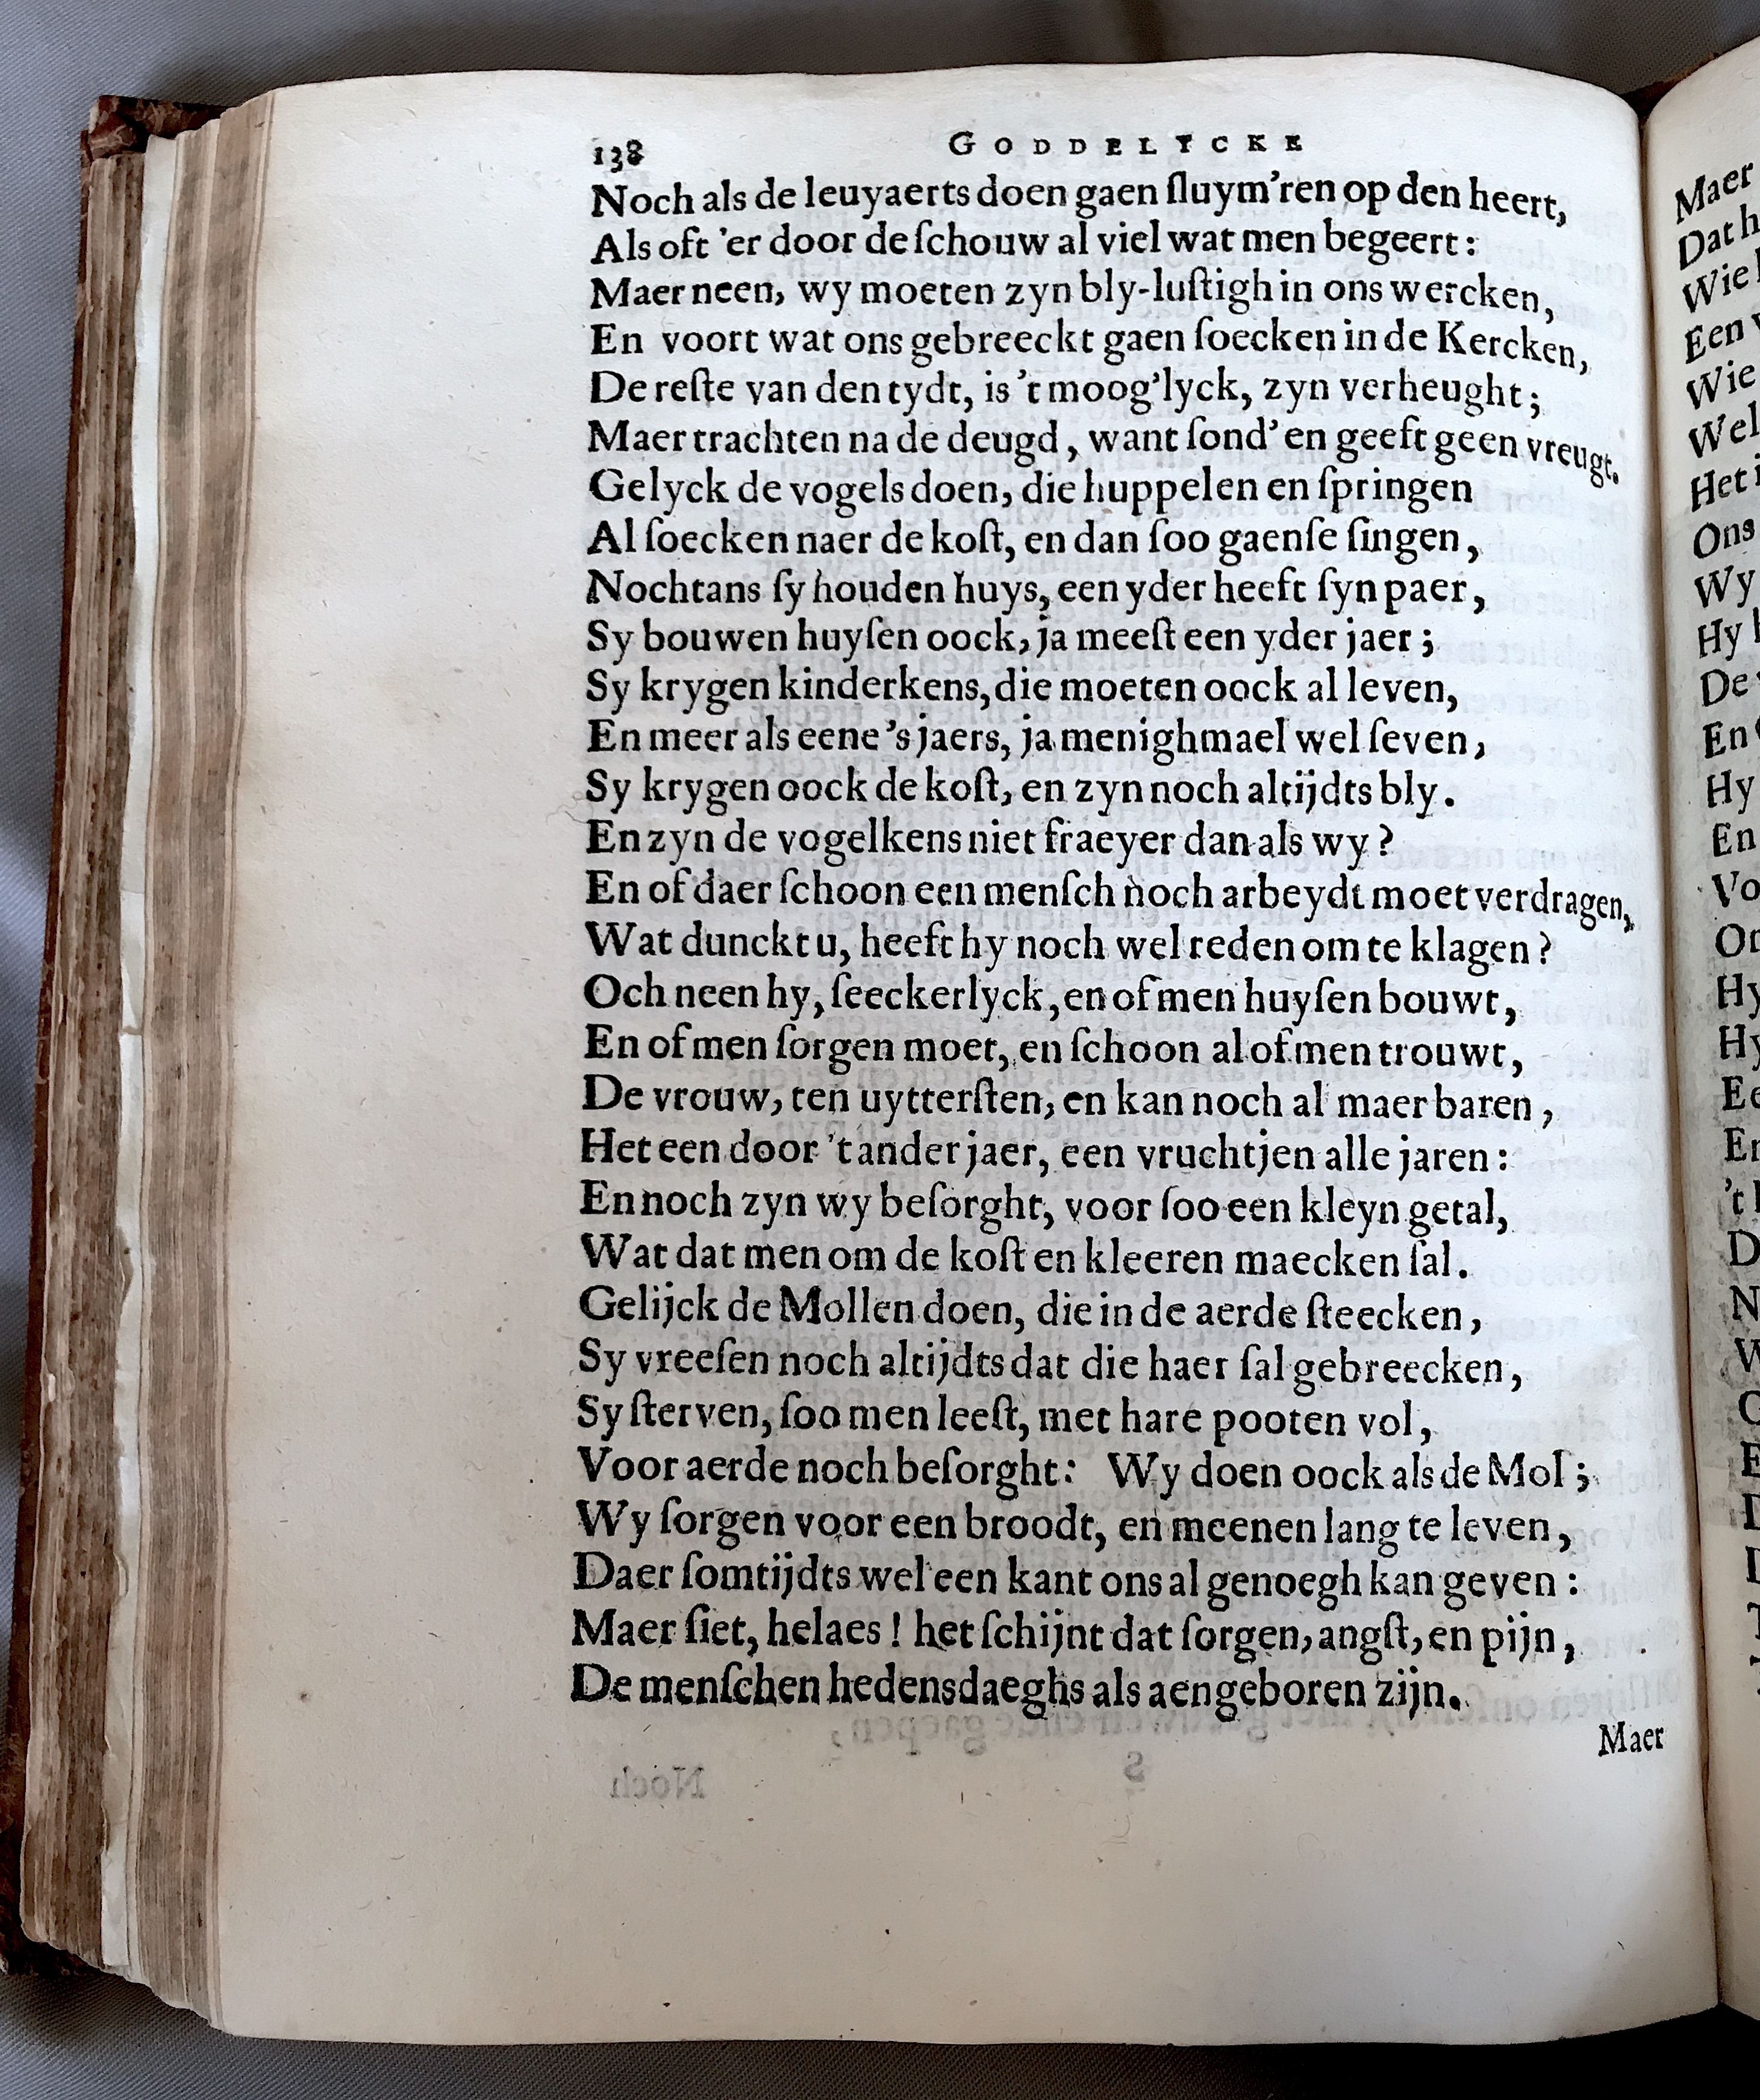 138 GODDELYCKE
Noch als de leuyaerts doen gaen ſluym'ren op den heert,
Als oft 'er door de ſchouw al viel wat men begeert:
Maer neen, wy moeten zyn bly-luſtigh in ons wercken,
En voort wat ons gebreeckt gaen ſoecken in de Kercken,
De reſte van den tydt, is 't moog'lyck, zyn verheught;
Maer trachten na de deugd, want ſond' en geeft geen vreugt.
Gelyck de vogels doen, die huppelen en ſpringen
Al ſoecken naer de koſt, en dan ſoo gaenſe ſingen,
Nochtans ſy houden huys, een yder heeft ſyn paer,
Sy bouwen huyſen oock, ja meeſt een yder jaer;
Sy krygen kinderkens, die moeten oock al leven,
En meer als eene 's jaers, ja menighmael wel ſeven,
Sy krygen oock de koſt, en zyn noch altijdts bly.
En zyn de vogelkens niet fraeyer dan als wy?
En of daer ſchoon een menſch noch arbeydt moet verdragen,
Wat dunckt u, heeft hy noch wel reden om te klagen?
Och neen hy, ſeeckerlyck, en of men huyſen bouwt,
En of men ſorgen moet, en ſchoon al of men trouwt,
De vrouw, ten uytterſten, en kan noch al maer baren,
Het een door 't ander jaer, een vruchtjen alle jaren:
En noch zyn wy beſorght, voor ſoo een kleyn getal,
Wat dat men om de koſt en kleeren maecken ſal.
Gelijck de Mollen doen, die in de aerde ſteecken,
Sy vreeſen noch altijdts dat die haer ſal gebreecken,
Sy ſterven, ſoo men leeſt, met hare pooten vol,
Voor aerde noch beſorght: Wy doen oock als de Mol;
Wy ſorgen voor een broodt, en meenen lang te leven,
Daer ſomtijdts wel een kant ons al genoegh kan geven:
Maer ſiet, helaes! het ſchijnt dat ſorgen, angſt, en pijn,
De menſchen hedensdaeghs als aengeboren zijn.
Maer
Maer
Dat
Wie
Een
Wie
Wel
Het
Ons
Wy
Hy
De
En
Hy
En